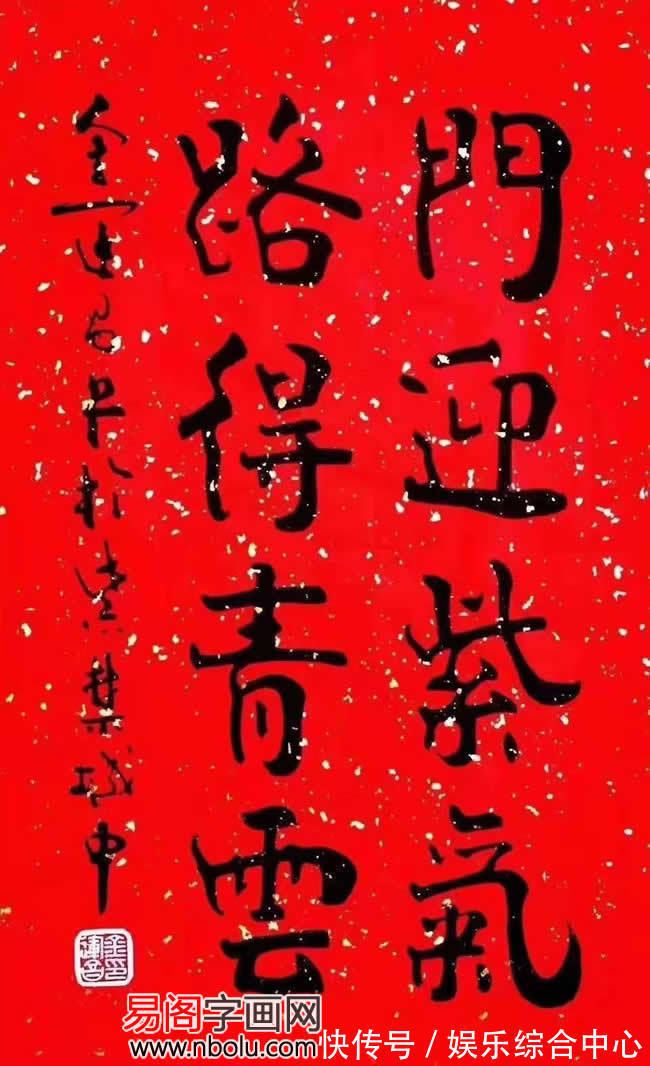 門迎紫氣
路得青雲
金運昌書於紫禁城中
金印
運昌
易阁字画网
www.nbolu.com
快传号 / 娱乐综合中心